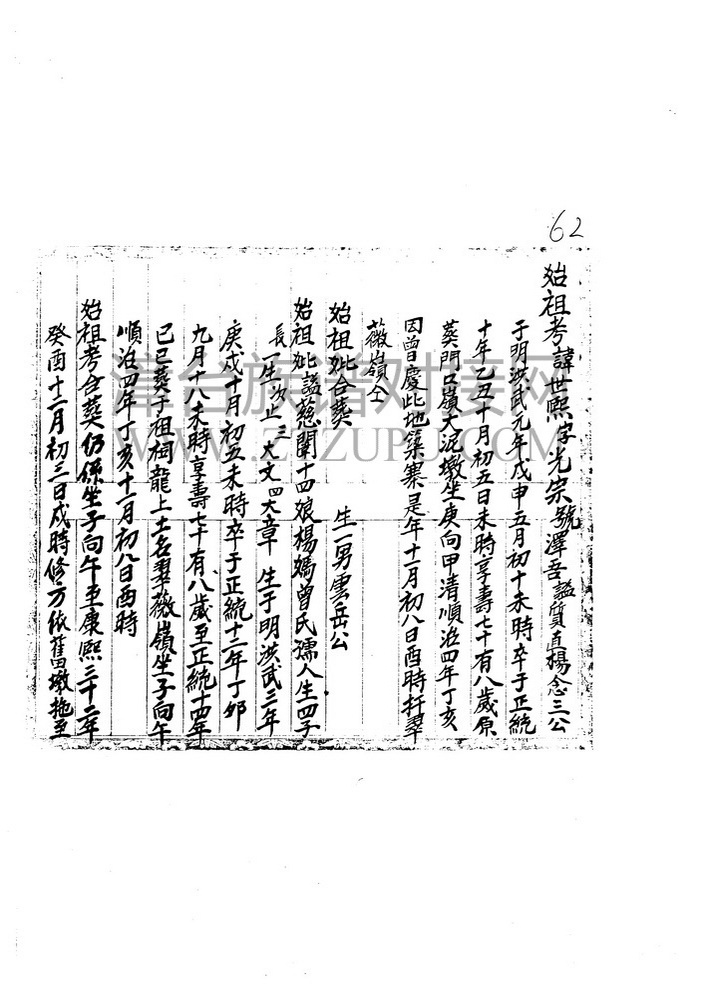 62
始祖考諱世熙字光宗號澤吾謚質直楊念三公
于明洪武元年戊申五月初十未時卒于正統
十年乙丑十月初五日未時享壽七十有八歲原
葬門口嶺大泥墩坐庚向甲清順治四年丁亥
因曾慶此地築寨是年十一月初八日酉時扦翠
薇嶺仝
始祖妣合葬 生一男雲岳公
始祖妣謚慈閫十四娘楊媽曾氏孺人生四子
長一生次止三大文四大章 生于明洪武三年
庚戌十月初五未時卒于正統十二年丁卯
九月十八未時享壽七十有八歲至正統十四年
己巳葬于祖祠龍上土名翠薇嶺坐子向午
順治四年丁亥十一月初八日酉時
始祖考合葬仍係坐子向午至康熙三十二年
癸酉十二月初三日戍時修方依舊墩拖至
漳台族谱对接网
WWW.ZTZUPU.COM